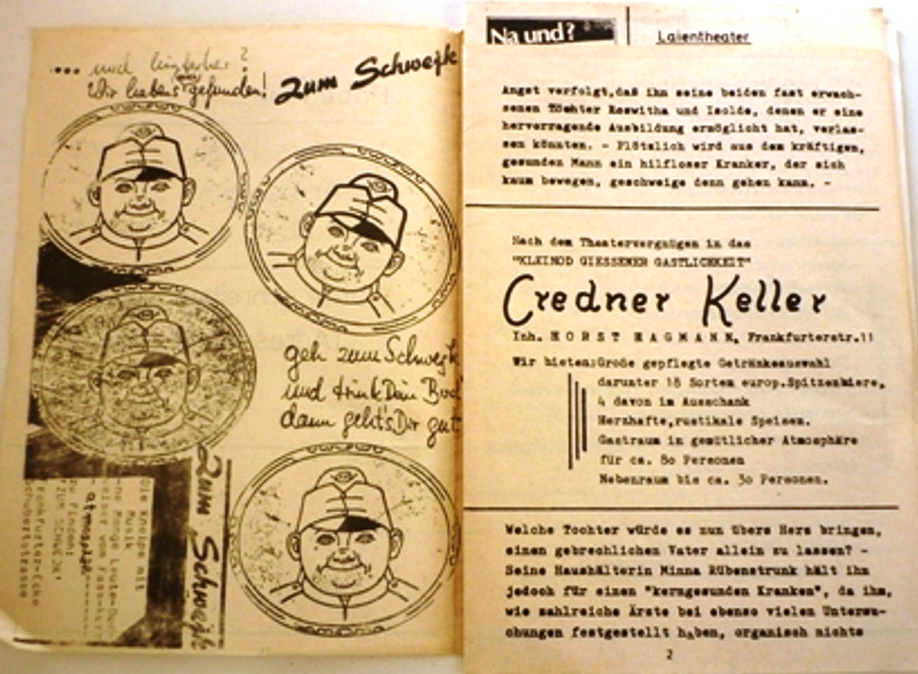 .... und hinterher?
Wir haben's gefunden!
Zum Schwejk
geh zum Schwejk
und trink Dein Bier
dann geht's Dir gut
Zum Schwejk
Die Kneipe mit
Musik
ne Menge Leute
atmosphäre
zu finden:
"ZUM SCHWEJK"
Frankfurter-Ecke
Schubertstrasse
Na und?
Laientheater
Angst verfolgt,daß ihn seine beiden fast erwach-
senen Töchter Roswitha und Isolde, denen er eine
hervorragende Ausbildung ermöglicht hat, verlas-
sen könnten. - Plötzlich wird aus dem kräftigen,
gesunden Mann ein hilfloser Kranker, der sich
kaum bewegen, geschweige denn gehen kann. -
Nach dem Theatervergnügen in das
"KLEINOD GIESSENER GASTLICHKEIT"
Credner Keller
Inh. HORST HAGMANN, Frankfurterstr.11
Wir bieten:Große gepflegte Getränkeauswahl
darunter 18 Sorten europ.Spitzenbiere,
4 davon im Ausschank
Herzhafte,rustikale Speisen.
Gastraum in gemütlicher Atmosphäre
für ca. 80 Personen
Nebenraum bis ca. 30 Personen.
Welche Tochter würde es nun übers Herz bringen,
einen gebrechlichen Vater allein zu lassen? -
Seine Haushälterin Minna Rübenstrunk hält ihn
jedoch für einen "kerngesunden Kranken", da ihm,
wie zahlreiche Ärzte bei ebenso vielen Untersu-
chungen festgestellt haben, organisch nichts
2